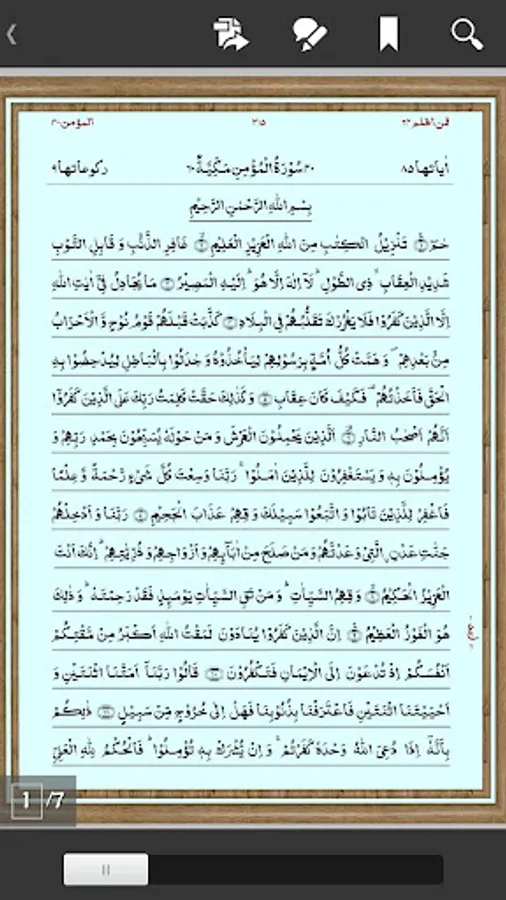 فمن اظلم ٢٤ ٣١٥ المؤمن ٤٠
اٰیاتھا ٨٥ ٤٠ سُوْرَةُ الْمُؤْمِنِ مَكِّیَّةٌ ٦٠ رکوعاتھا ٩
بِسْمِ اللّٰهِ الرَّحْمٰنِ الرَّحِیْمِ
حٰمٓ ۝ تَنْزِیْلُ الْكِتٰبِ مِنَ اللّٰهِ الْعَزِیْزِ الْعَلِیْمِ ۝ غَافِرِ الذَّنْۢبِ وَ قَابِلِ التَّوْبِ
شَدِیْدِ الْعِقَابِ ۙ ذِی الطَّوْلِ ؕ لَاۤ اِلٰهَ اِلَّا هُوَ ؕ اِلَیْهِ الْمَصِیْرُ ۝ مَا یُجَادِلُ فِیْۤ اٰیٰتِ اللّٰهِ
اِلَّا الَّذِیْنَ كَفَرُوْا فَلَا یَغْرُرْكَ تَقَلُّبُهُمْ فِی الْبِلَادِ ۝ كَذَّبَتْ قَبْلَهُمْ قَوْمُ نُوْحٍ وَّ الْاَحْزَابُ
مِنْۢ بَعْدِهِمْ ۪ وَ هَمَّتْ كُلُّ اُمَّةٍۭ بِرَسُوْلِهِمْ لِیَاْخُذُوْهُ وَ جٰدَلُوْا بِالْبَاطِلِ لِیُدْحِضُوْا بِهِ
الْحَقَّ فَاَخَذْتُهُمْ ۫ فَكَیْفَ كَانَ عِقَابِ ۝ وَ كَذٰلِكَ حَقَّتْ كَلِمَتُ رَبِّكَ عَلَی الَّذِیْنَ كَفَرُوْۤا
اَنَّهُمْ اَصْحٰبُ النَّارِ ۝ اَلَّذِیْنَ یَحْمِلُوْنَ الْعَرْشَ وَ مَنْ حَوْلَهٗ یُسَبِّحُوْنَ بِحَمْدِ رَبِّهِمْ وَ
یُؤْمِنُوْنَ بِهٖ وَ یَسْتَغْفِرُوْنَ لِلَّذِیْنَ اٰمَنُوْا ۚ رَبَّنَا وَسِعْتَ كُلَّ شَیْءٍ رَّحْمَةً وَّ عِلْمًا
فَاغْفِرْ لِلَّذِیْنَ تَابُوْا وَ اتَّبَعُوْا سَبِیْلَكَ وَ قِهِمْ عَذَابَ الْجَحِیْمِ ۝ رَبَّنَا وَ اَدْخِلْهُمْ
جَنّٰتِ عَدْنِ ِ۟الَّتِیْ وَعَدْتَّهُمْ وَ مَنْ صَلَحَ مِنْ اٰبَآىِٕهِمْ وَ اَزْوَاجِهِمْ وَ ذُرِّیّٰتِهِمْ ؕ اِنَّكَ اَنْتَ
الْعَزِیْزُ الْحَكِیْمُ ۝ وَ قِهِمُ السَّیِّاٰتِ ؕ وَ مَنْ تَقِ السَّیِّاٰتِ یَوْمَىِٕذٍ فَقَدْ رَحِمْتَهٗ ؕ وَ ذٰلِكَ
هُوَ الْفَوْزُ الْعَظِیْمُ ۝ اِنَّ الَّذِیْنَ كَفَرُوْا یُنَادَوْنَ لَمَقْتُ اللّٰهِ اَكْبَرُ مِنْ مَّقْتِكُمْ
اَنْفُسَكُمْ اِذْ تُدْعَوْنَ اِلَی الْاِیْمَانِ فَتَكْفُرُوْنَ ۝ قَالُوْا رَبَّنَاۤ اَمَتَّنَا اثْنَتَیْنِ وَ
اَحْیَیْتَنَا اثْنَتَیْنِ فَاعْتَرَفْنَا بِذُنُوْبِنَا فَهَلْ اِلٰی خُرُوْجٍ مِّنْ سَبِیْلٍ ۝ ذٰلِكُمْ
بِاَنَّهٗۤ اِذَا دُعِیَ اللّٰهُ وَحْدَهٗ كَفَرْتُمْ ۚ وَ اِنْ یُّشْرَكْ بِهٖ تُؤْمِنُوْا ؕ فَالْحُكْمُ لِلّٰهِ الْعَلِیِّ
1/7